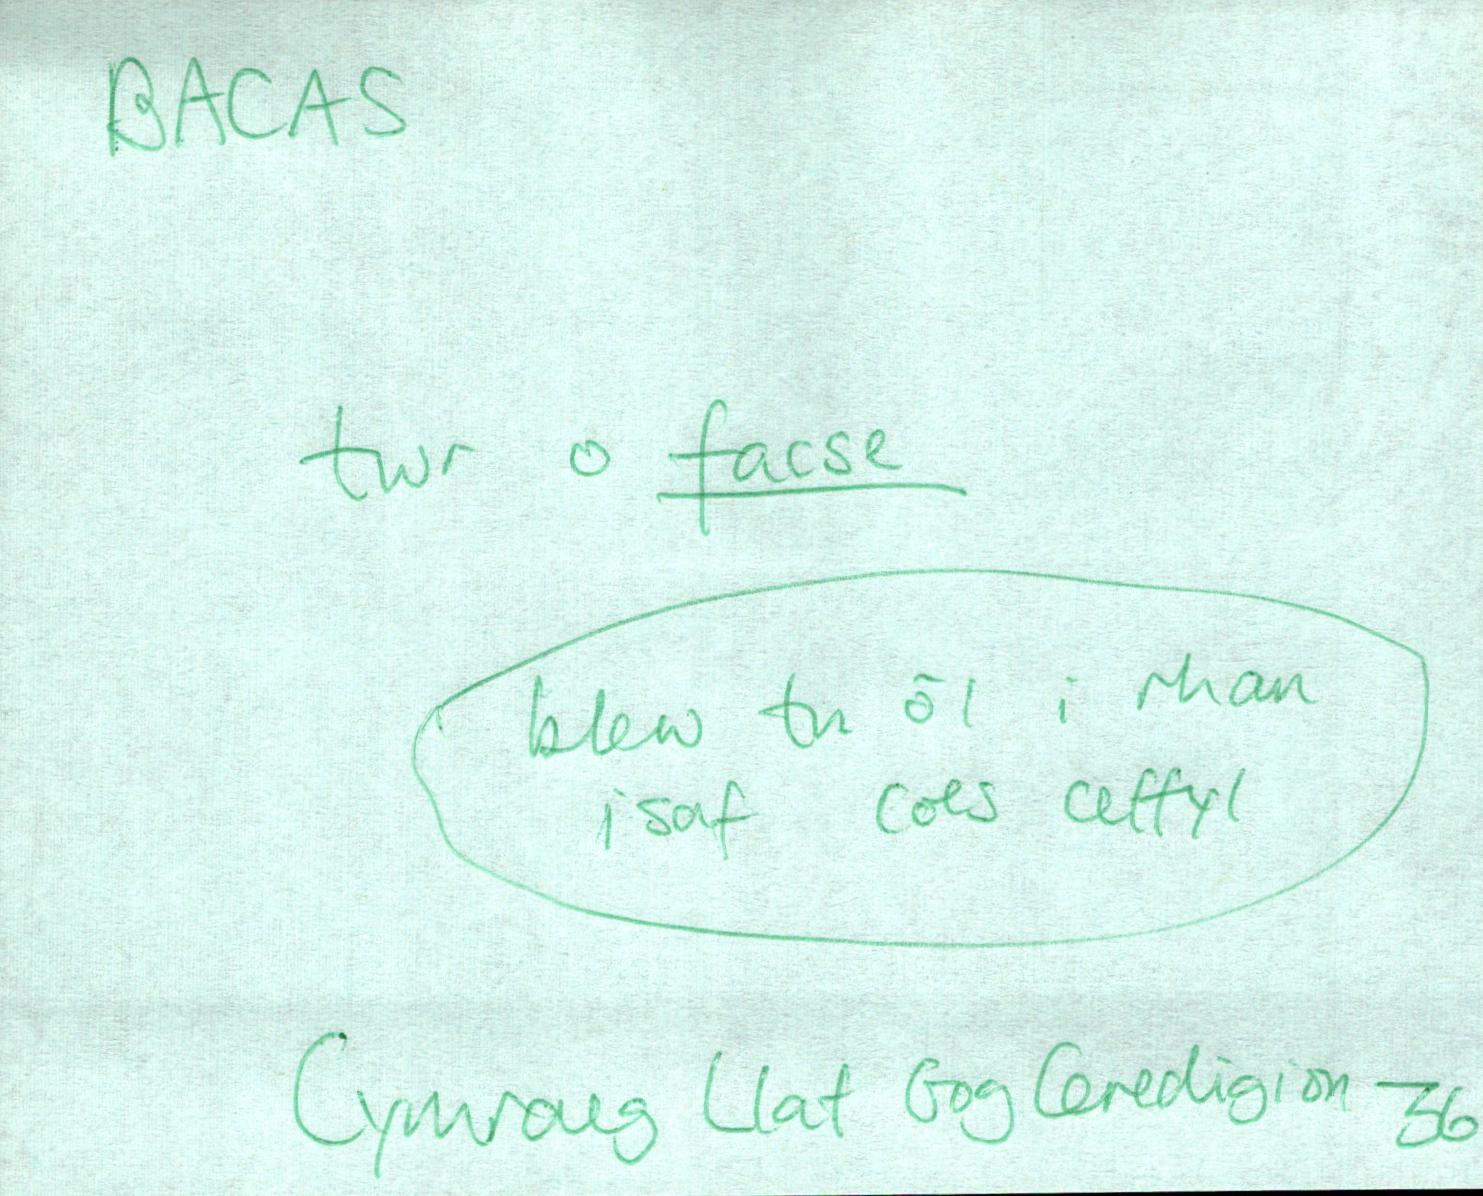 BACAS
twr o facse
blew tu ôl i rhan
isaf coes ceffyl
Cymraeg Llat Gog Ceredigion 36